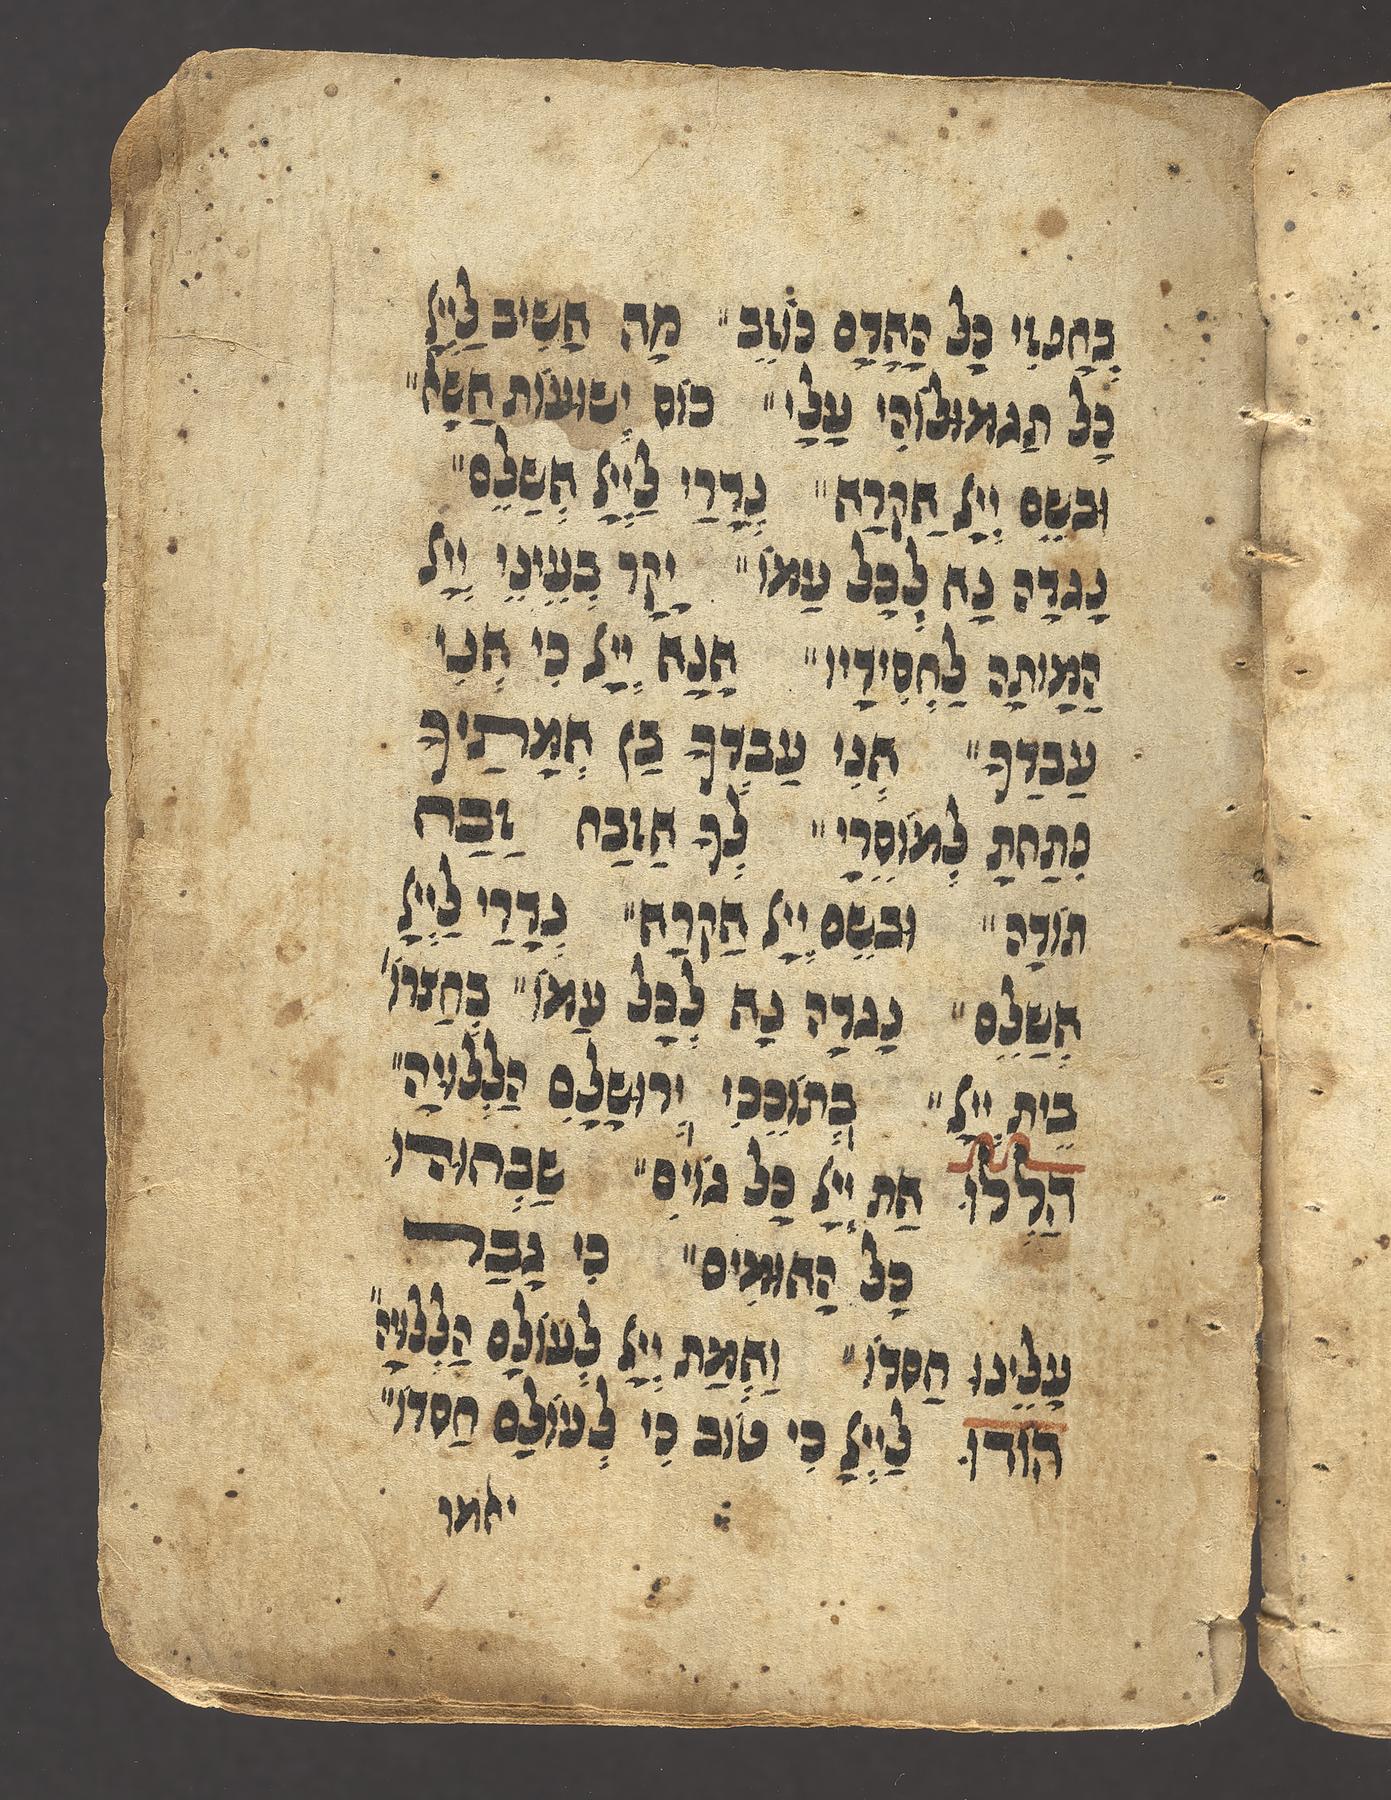 בחפזי כל האדם כוזב״ מה אשיב לייי
כל תגמולוהי עלי״ כוס ישועות אשא״
ובשם ייי אקרא״ נדרי לייי אשלם״
נגדה נא לכל עמו״ יקר בעיני ייי
המותה לחסידיו״ אנא ייי כי אני
עבדך״ אני עבדך בן אמתיך
פתחת למוסרי״ לך אזבח זבח
תודה״ ובשם ייי אקרא״ נדרי לייי
אשלם״ נגדה נא לכל עמו״ בחצרו׳
בית ייי״ בתוככי ירושלם הללויה״
הללו את ייי כל גוים״ שבחוהו
כל האומים״ כי גבר
עלינו חסדו״ ואמת ייי לעולם הללויה״
הודו לייי כי טוב כי לעולם חסדו״
יאמר